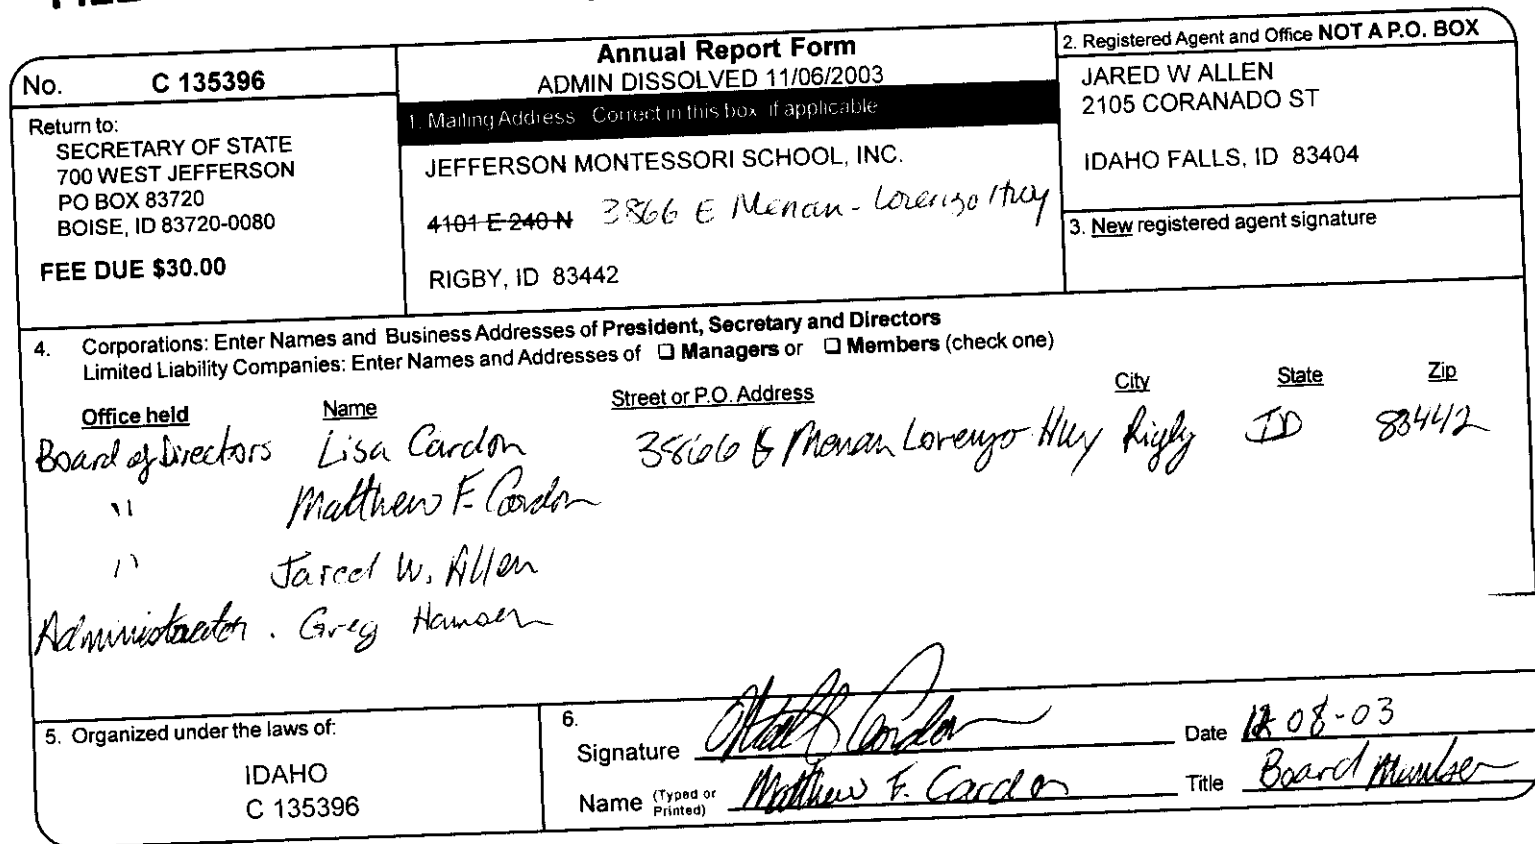 No. C 135396
Return to:
SECRETARY OF STATE
700 WEST JEFFERSON
PO BOX 83720
BOISE, ID 83720-0080
FEE DUE $30.00
Annual Report Form
ADMIN DISSOLVED 11/06/2003
1. Mailing Address Correct in this box if applicable
JEFFERSON MONTESSORI SCHOOL, INC.
4101 E 240 N 3866 E Menan-Lorenzo Hwy
RIGBY, ID 83442
2. Registered Agent and Office NOT A P.O. BOX
JARED W ALLEN
2105 CORANADO ST
IDAHO FALLS, ID 83404
3. New registered agent signature
4. Corporations: Enter Names and Business Addresses of President, Secretary and Directors
Limited Liability Companies: Enter Names and Addresses of ❏ Managers or ❏ Members (check one)
Office held Name Street or P.O. Address City State Zip
Board of Directors Lisa Cardon 3866 E Menan Lorenzo Hwy Rigby ID 83442
" Matthew F. Cardon
" Jared W. Allen
Administrator. Greg Hansen
5. Organized under the laws of:
IDAHO
C 135396
6.
Signature Matt F Cardon Date 12 08-03
Name (Typed or Printed) Matthew F. Cardon Title Board Member